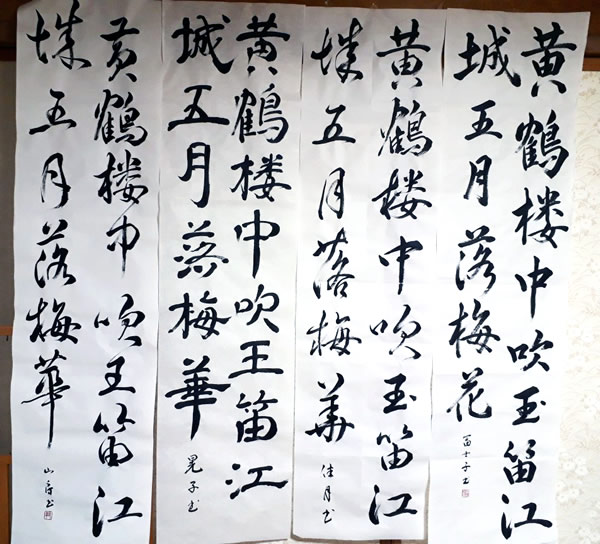 黄鶴楼中吹玉笛江
城五月落梅花
冨士子書
黄鶴楼中吹玉笛江
城五月落梅華
佳月書
黄鶴楼中吹王笛江
城五月落梅華
晃子書
黄鶴楼中吹玉笛江
城五月落梅華